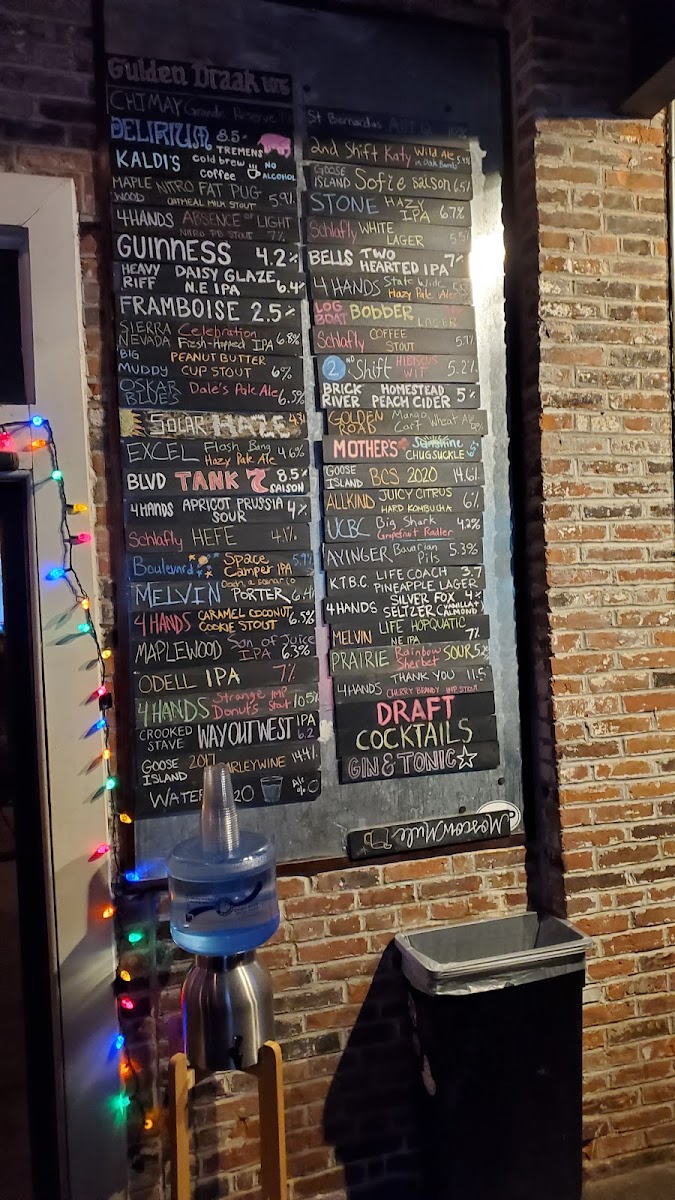 Gulden Draak
CHIMAY Grande Reserve
DELIRIUM 8.5%
TREMENS
KALDI'S cold brew
coffee NO
ALCOHOL
MAPLE NITRO FAT PUG
WOOD OATMEAL MILK STOUT 5.9%
4HANDS ABSENCE OF LIGHT
NITRO PB STOUT 7%
GUINNESS 4.2%
HEAVY DAISY GLAZE
RIFF N.E IPA 6.4%
FRAMBOISE 2.5%
SIERRA Celebration
NEVADA Fresh-Hopped IPA 6.8%
BIG PEANUT BUTTER
MUDDY CUP STOUT 6%
OSKAR Dale's Pale Ale
BLUE'S 6.5%
SOLAR HAZE
EXCEL Flash Bang
Hazy Pale Ale 4.6%
BLVD TANK 7 8.5%
SAISON
4HANDS APRICOT PRUSSIA
SOUR 4%
Schlafly HEFE 4.1%
Boulevard Space
Camper IPA 5.9%
MELVIN
PORTER
4HANDS CARAMEL COCONUT
COOKIE STOUT 6.5%
MAPLEWOOD Son of Juice
IPA 6.3%
ODELL IPA 7%
4HANDS Strange IMP
Donuts Stout 10.5%
CROOKED WAY OUT WEST IPA
STAVE 6.2
GOOSE 2017 BARLEYWINE 14.4%
ISLAND
WATER
St Bernardus
2nd Shift Katy Wild Ale
in Oak Barrels
GOOSE
ISLAND Sofie Saison 6.5%
STONE HAZY
IPA 6.7%
Schlafly WHITE
LAGER
BELLS TWO
HEARTED IPA 7%
4 HANDS State Wide
Hazy Pale Ale
LOG
BOAT BOBBER
LAGER
Schlafly COFFEE
STOUT 5.7%
2ND Shift HIBISCUS
WIT 5.2%
BRICK HOMESTEAD
RIVER PEACH CIDER 5%
GOLDEN Mango
ROAD Cart Wheat Ale
MOTHER'S Sunshine
CHUGSUCKLE
GOOSE
ISLAND BCS 2020 14.6%
ALLKIND JUICY CITRUS
HARD KOMBUCHA 6%
UCBC Big Shark
Grapefruit Radler 4.2%
AYINGER Bavarian
Pils 5.3%
K.T.B.C LIFE COACH 3.7
PINEAPPLE LAGER
4HANDS SILVER FOX 4%
SELTZER VANILLA+
ALMOND
MELVIN LIFE HOPQUATIC
NE IPA 7%
PRAIRIE Rainbow
Sherbet SOUR 5.2%
4HANDS THANK YOU 11.5
CHERRY BRANDY IMP STOUT
DRAFT
COCKTAILS
GIN & TONIC
Moscow Mule